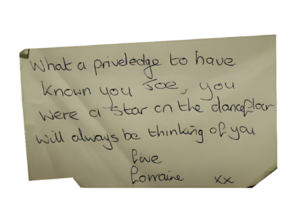 What a priveledge to have
known you Joe, you
were a star on the dancefloor
will always be thinking of you
Love
Lorraine xx